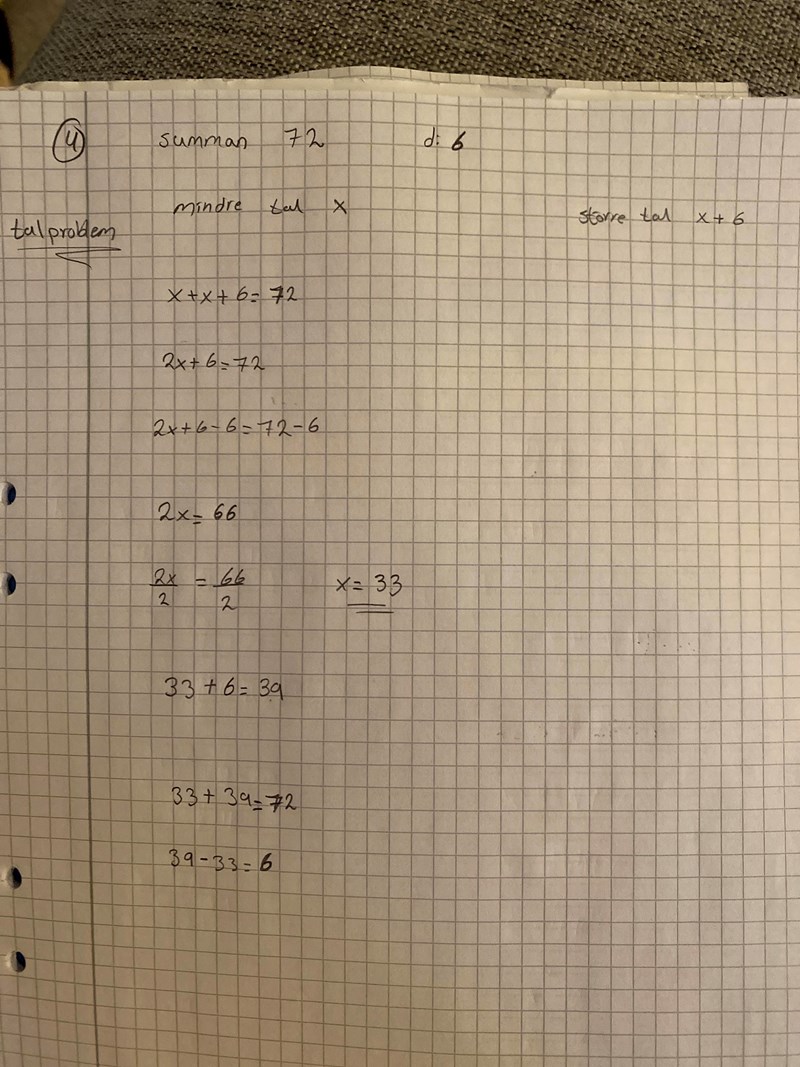 4 summan 72 d: 6
mindre tal x storre tal x + 6
talproblem
x + x + 6 = 72
2x + 6 = 72
2x + 6 - 6 = 72 - 6
2x = 66
2x/2 = 66/2 x = 33
33 + 6 = 39
33 + 39 = 72
39 - 33 = 6